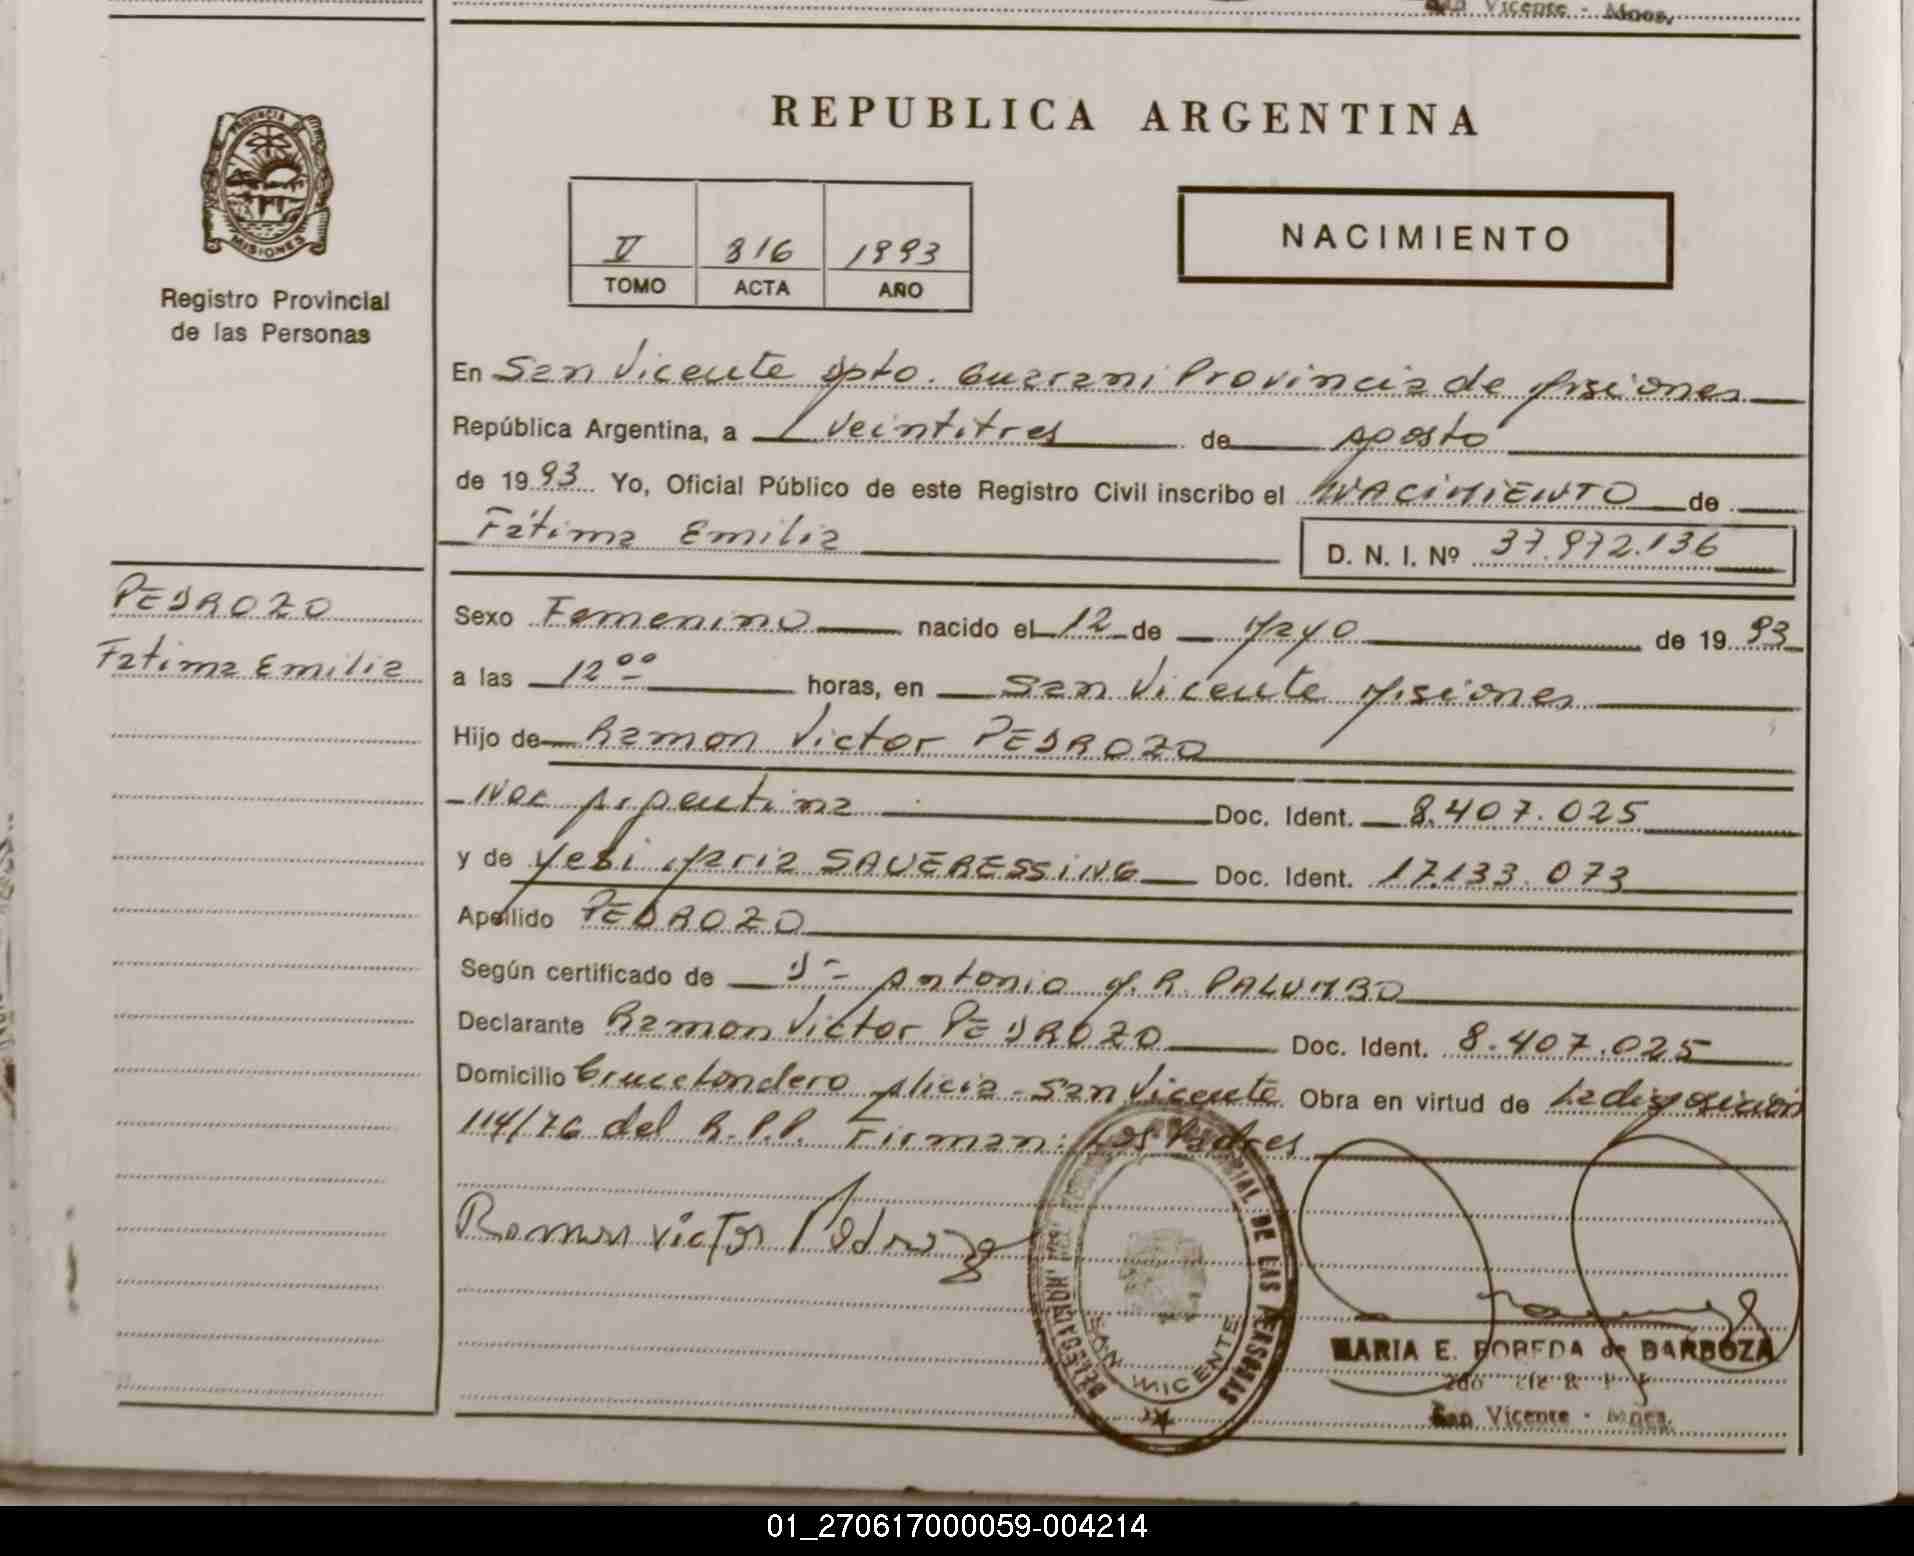 San Vicente - Mnes.
REPUBLICA ARGENTINA
PROVINCIA DE
MISIONES
Registro Provincial
de las Personas
V 816 1993
TOMO ACTA AÑO
NACIMIENTO
En San Vicente Dpto. Guarani Provincia de Misiones
República Argentina, a veintitres de Agosto
de 1993 Yo, Oficial Público de este Registro Civil inscribo el NACIMIENTO de
Fátima Emilia D. N. I. Nº 37.972.136
PEDROZO
Fatima Emilia
Sexo Femenino nacido el 12 de Mayo de 1993
a las 12 00 horas, en San Vicente Misiones
Hijo de Ramon Victor PEDROZO
Nac Argentina Doc. Ident. 8.407.025
y de Yesi Maria SAUERESSING Doc. Ident. 17.133.073
Apellido PEDROZO
Según certificado de Dr Antonio M. R. PALUMBO
Declarante Ramon Victor PEDROZO Doc. Ident. 8.407.025
Domicilio Alicia - San Vicente Obra en virtud de La disposicion
114/76 del R.P.P. Firman: Los Padres
Ramon Victor Pedrozo
DELEGACION DE LAS PERSONAS
SAN VICENTE
MARIA E. POREDA de BARBOZA
San Vicente - Mnes.
01_270617000059-004214